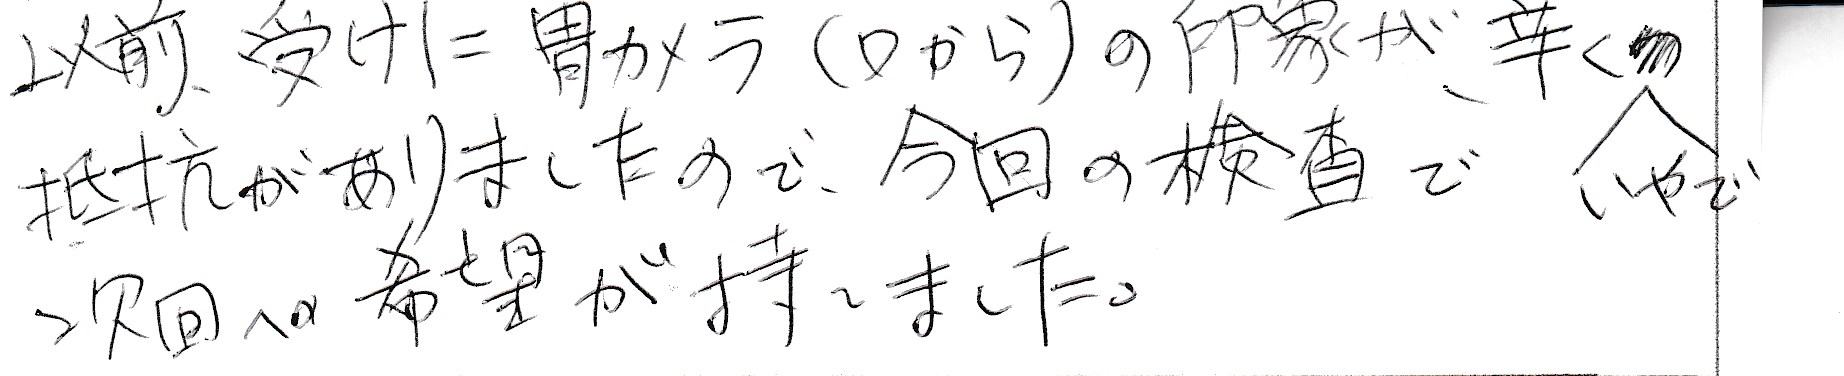 以前、受けた胃カメラ(口から)の印象が、辛く
いやで
抵抗がありましたので、今回の検査で
次回への希望が持てました。